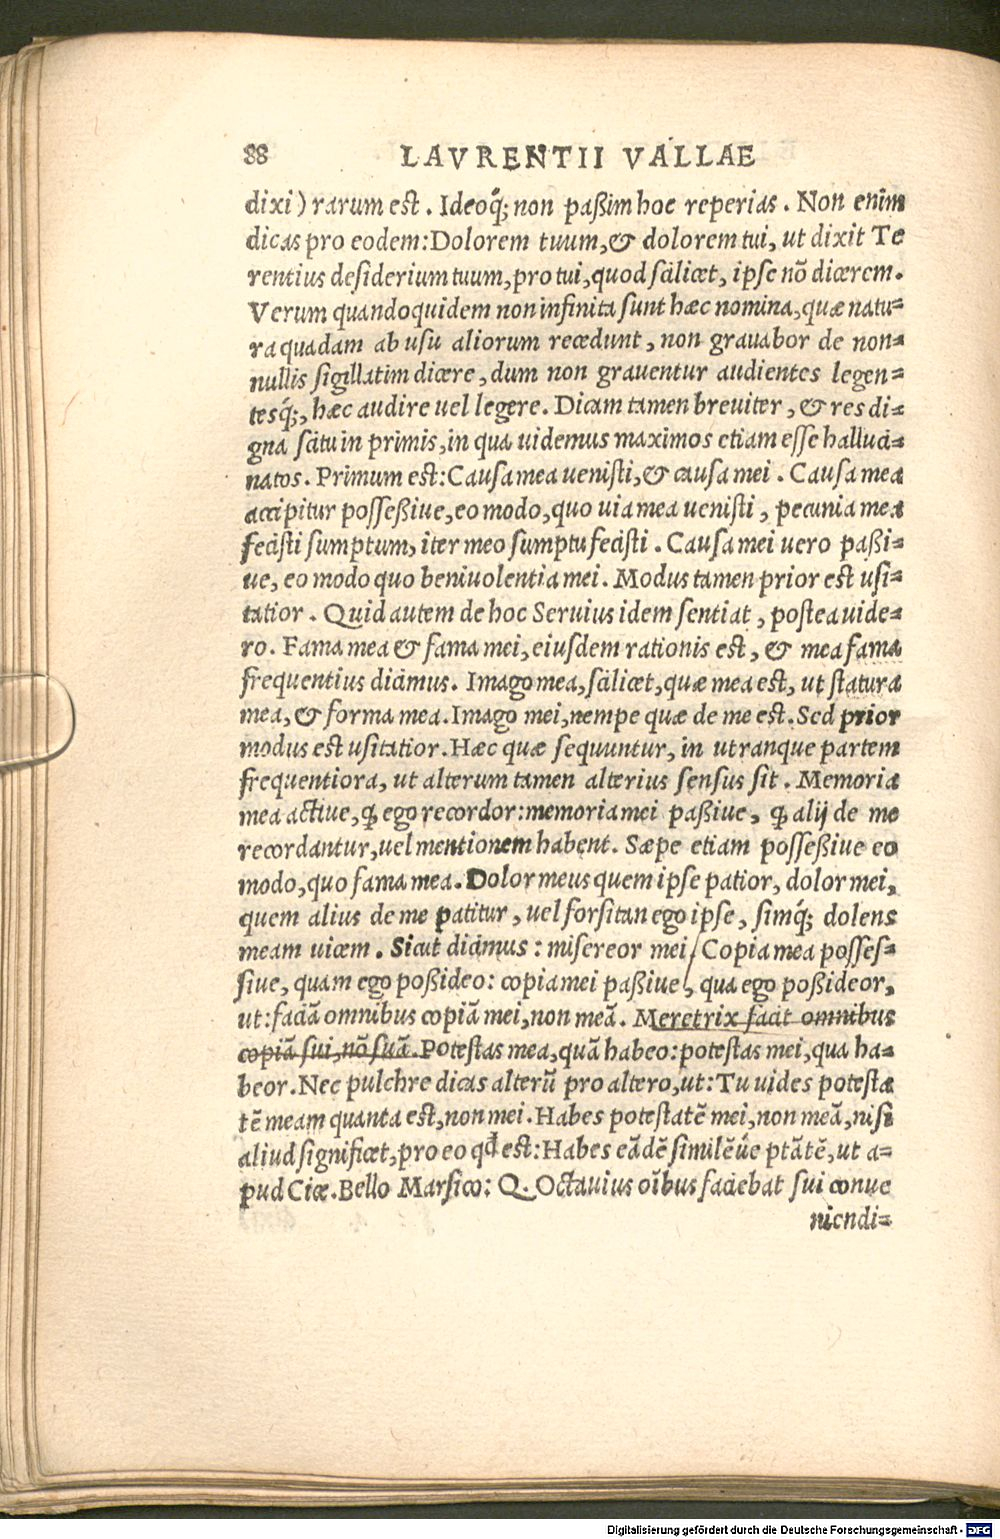 88 LAVRENTII VALLAE
dixi) rarum est. Ideoq́; non paßim hoc reperias. Non enim
dicas pro eodem: Dolorem tuum, & dolorem tui, ut dixit Te
rentius desiderium tuum, pro tui, quod scilicet, ipse nō dicerem.
Verum quandoquidem non infinita sunt hæc nomina, quæ natu=
ra quadam ab usu aliorum recedunt, non grauabor de non=
nullis sigillatim dicere, dum non grauentur audientes legen=
tesq́;, hæc audire uel legere. Dicam tamen breuiter, & res di=
gna scitu in primis, in qua uidemus maximos etiam esse halluci=
natos. Primum est: Causa mea uenisti, & causa mei. Causa mea
accipitur posseßiue, eo modo, quo uia mea uenisti, pecunia mea
fecisti sumptum, iter meo sumptu fecisti. Causa mei uero paßi=
ue, eo modo quo beniuolentia mei. Modus tamen prior est usi=
tatior. Quid autem de hoc Seruius idem sentiat, postea uide=
ro. Fama mea & fama mei, eiusdem rationis est, & mea fama
frequentius dicimus. Imago mea, scilicet, quæ mea est, ut statura
mea, & forma mea. Imago mei, nempe quæ de me est. Sed prior
modus est usitatior. Hæc quæ sequuntur, in utranque partem
frequentiora, ut alterum tamen alterius sensus sit. Memoria
mea actiue, ꝙ ego recordor: memoria mei paßiue, ꝙ alij de me
recordantur, uel mentionem habent. Sæpe etiam posseßiue eo
modo, quo fama mea. Dolor meus quem ipse patior, dolor mei,
quem alius de me patitur, uel forsitan ego ipse, simq́; dolens
meam uicem. Sicut dicimus: misereor mei/ Copia mea posses=
siue, quam ego poßideo: copia mei paßiue, qua ego poßideor,
ut: faciā omnibus copiā mei, non meā. Meretrix facit omnibus
copiā sui, nō suā. Potestas mea, quā habeo: potestas mei, qua ha=
beor. Nec pulchre dicas alterū pro altero, ut: Tu uides potesta
tē meam quanta est, non mei. Habes potestatē mei, non meā, nisi
aliud significet, pro eo qd̕ est: Habes eādē similēúe ptātē, ut a=
pud Cic. Bello Marsico: Q. Octauius oībus faciebat sui conue
niendi=
Digitalisierung gefördert durch die Deutsche Forschungsgemeinschaft - DFG